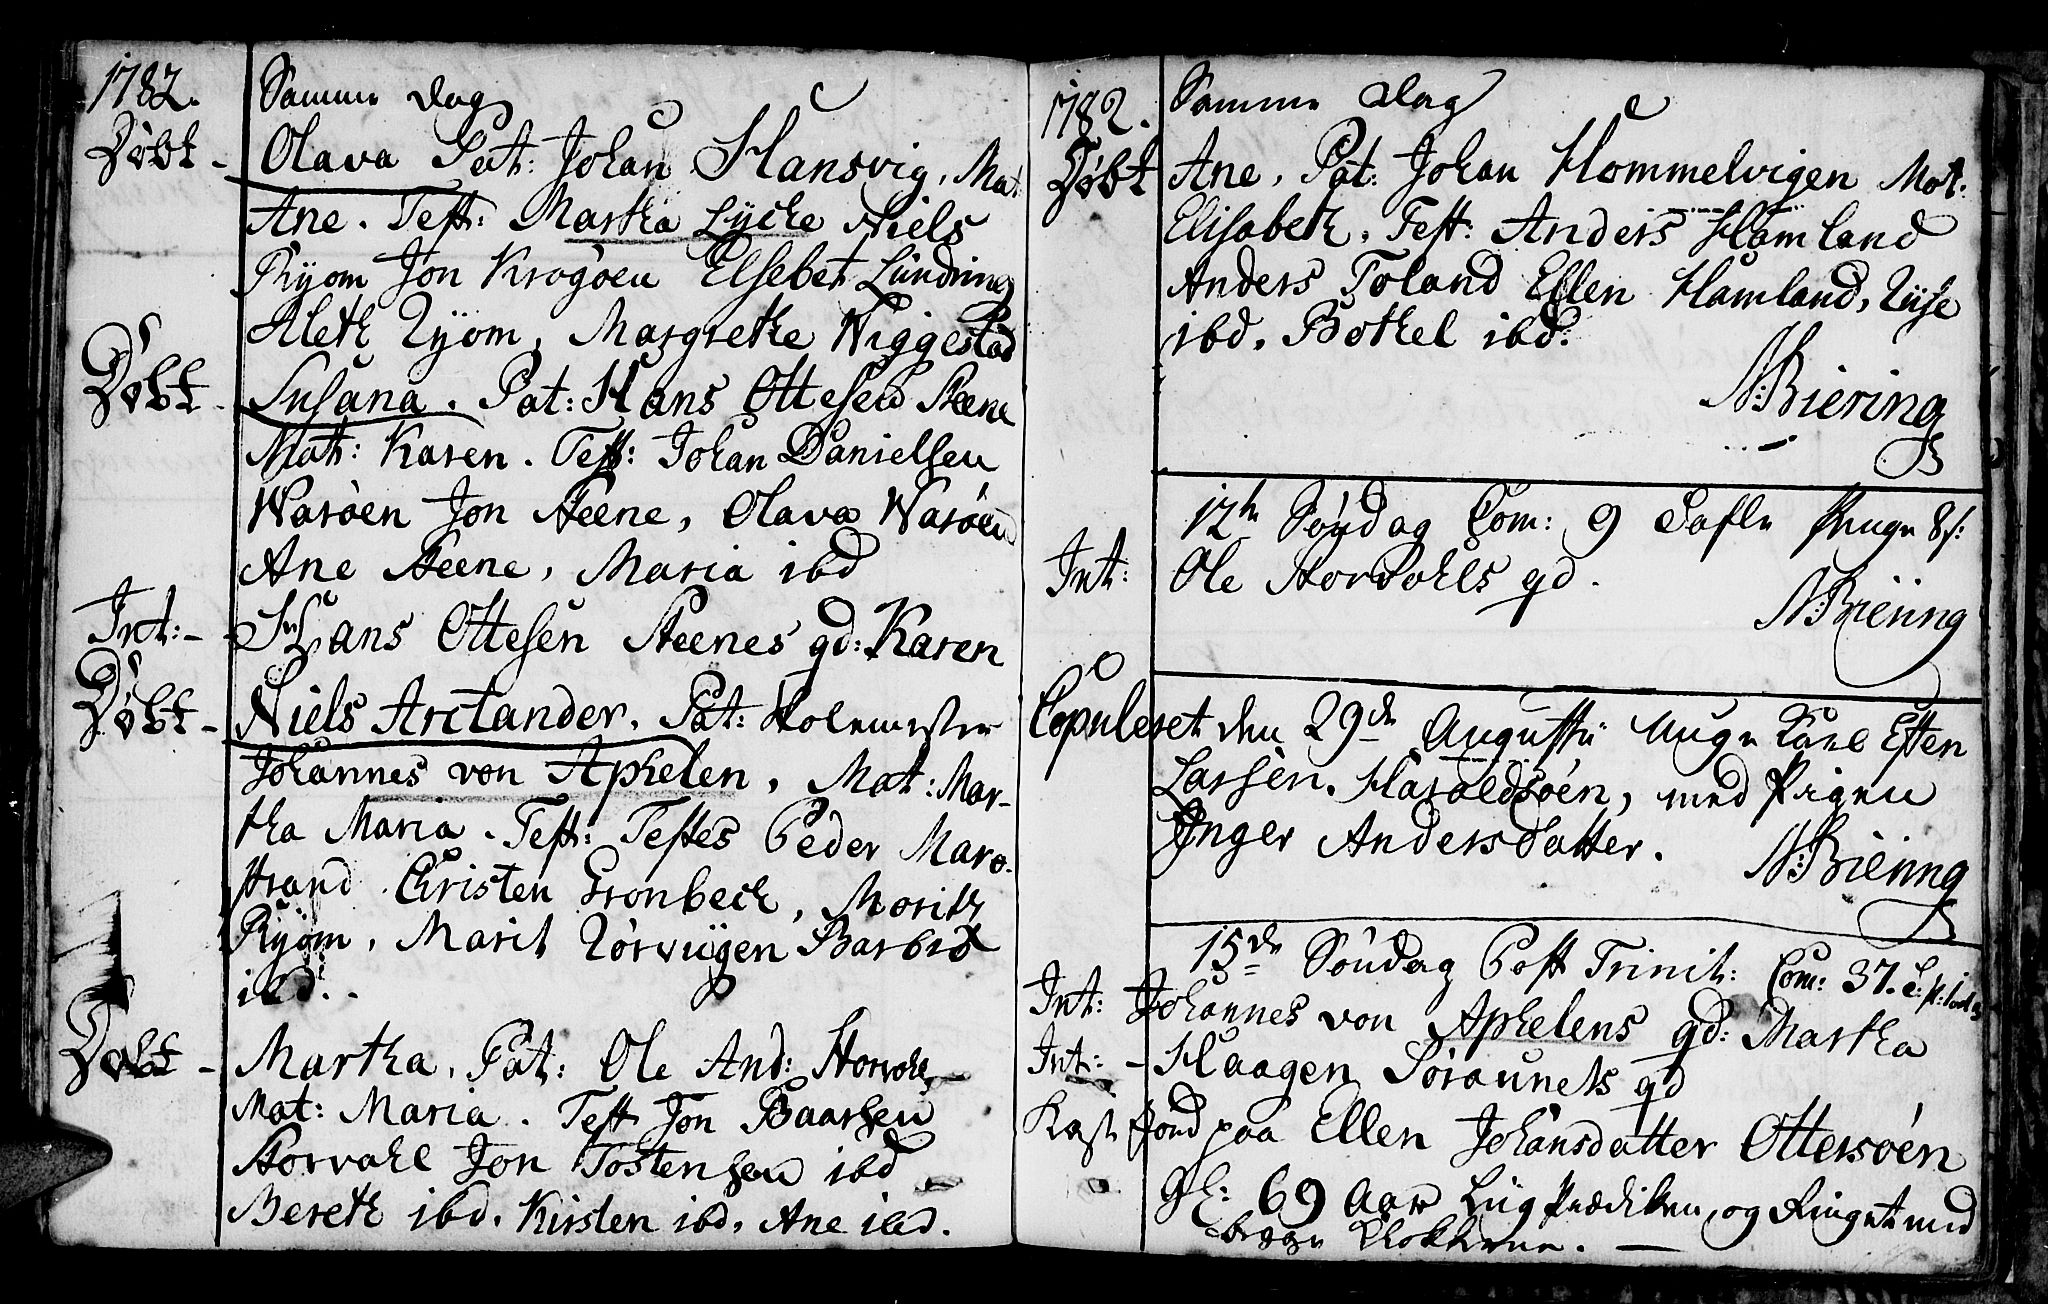 1782. Samme Dag
Døbt - Olava Pat: Johan Hansvig, Mat:
Ane. Test: Martha Lycke Niels
Ryom Jon Krogøen Elsebet Lundring
Aleth Ryom, Margrethe Wiggestad
Døbt - Susana. Pat: Hans Ottesen Steene
Mat: Karen. Test: Johan Danielsen
Warøen Jon Steene, Olava Warøen
Ane Steene, Maria ibd
Int: - Hans Ottesen Steenes gd: Karen
Døbt - Niels Arctander. Pat: Skolemester
Johannes von Aphelen, Mat: Mar-
tha Maria. Test: Testes Peder Mar
strand Christen Gronbech, Morith
Ryom, Marit Rørvigen Barbro
ibd.
Døbt - Martha, Pat: Ole And: Storvahl
Mat: Maria. Test Jon Baarsen
Storvahl Jon Tostensen ibd
Bereth ibd. Kirsten ibd. Ane ibd.
1782. Samme Dag
Døbt Ane, Pat: Johan Hommelvigen Mat:
Elisabeth. Test: Anders Hamland
Anders Foland Ellen Hamland, Lise
ibd. Bothel ibd:
N: Biering
12te Søndag Com: 9 Tafle Penge 8 s:
Int: Ole Storvahls gd.
N: Biering
Copuleret den 29de Augusti Unge Karl Esten
Larsen. Haroldsøen, med Pigen
Inger Andersdatter.
N: Biering
15de Søndag Post Trinit: Com: 37.
Int: Johannes von Aphelens gd: Martha
Int: - Haagen Søraunets gd
Kast Jord paa Ellen Johansdatter Ottersøen
gl: 69 Aar Liig Prædiken, og Ringet med
begge Klokkerne.